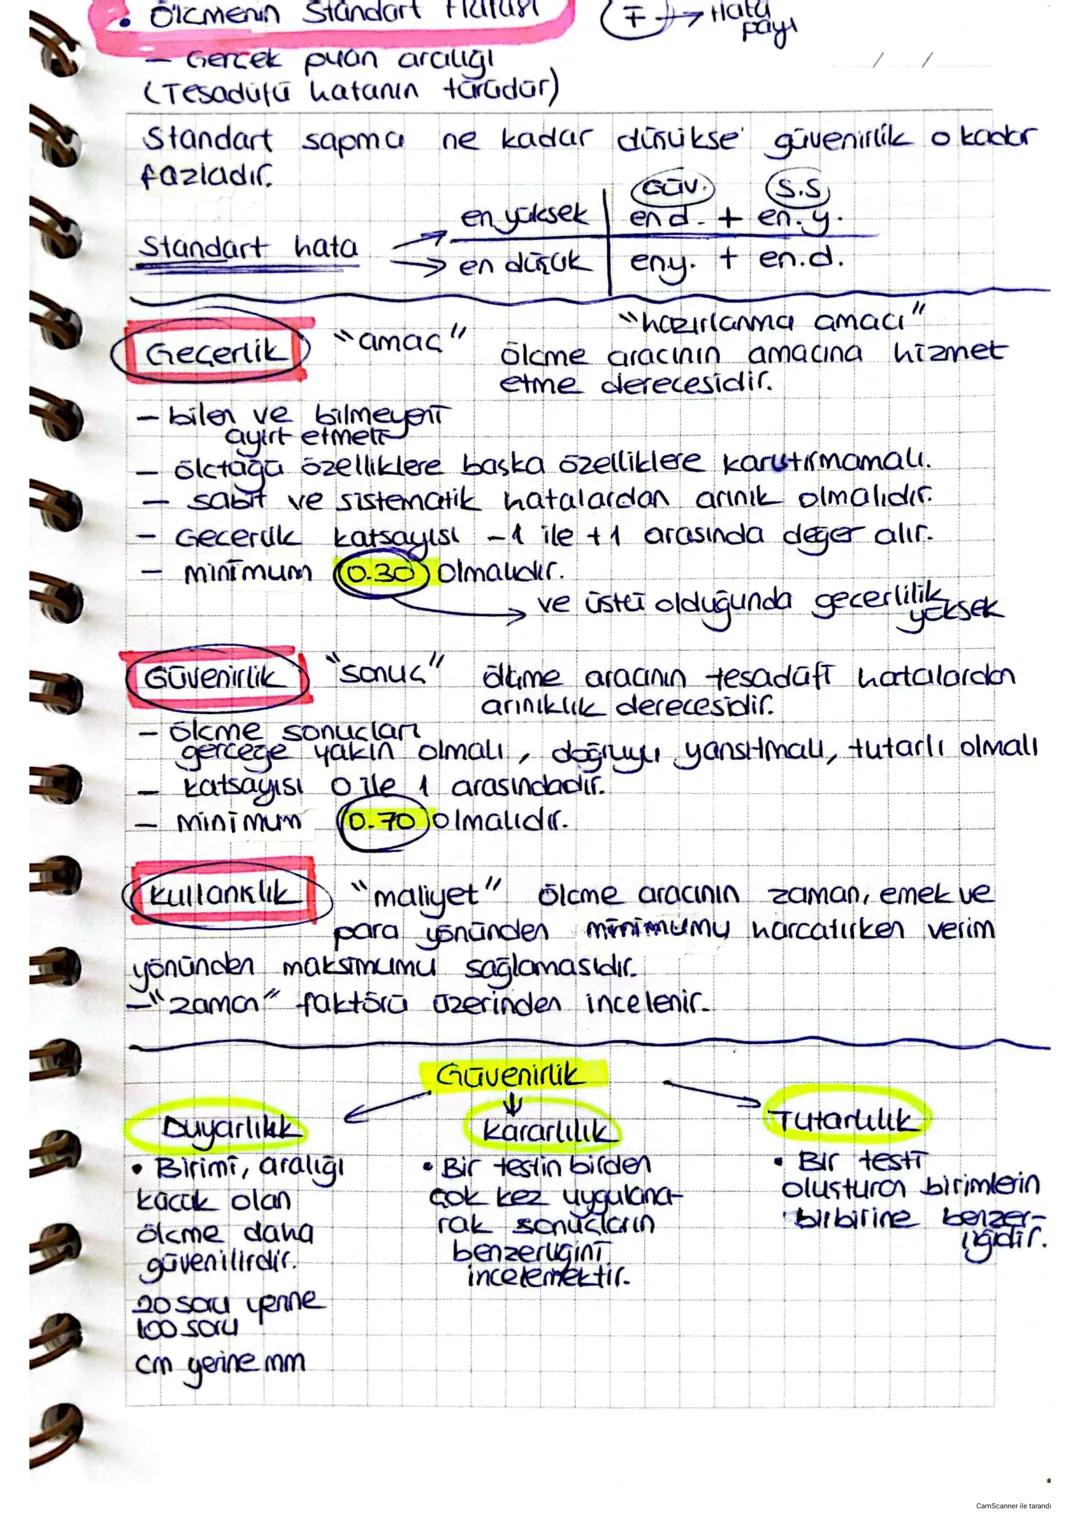 • Ölçmenin Standart Hatası (∓ → Hata
payı
— Gerçek puan aralığı
(Tesadüfü hatanın türüdür)
Standart sapma ne kadar düşükse güvenirlik o kadar
fazladır.
Güv. S.S
en yüksek en d. + en.y.
Standart hata
en düşük en y. + en.d.
"hazırlanma amacı"
Geçerlik "amaç" ölçme aracının amacına hizmet
etme derecesidir.
— bilen ve bilmeyeni
ayırt etmeli
— ölçtüğü özelliklere başka özelliklere karıştırmamalı.
— sabit ve sistematik hatalardan arınık olmalıdır.
— Geçerlik katsayısı -1 ile +1 arasında değer alır.
— minimum 0.30 olmalıdır.
→ ve üstü olduğunda geçerlilik
yüksek
Güvenirlik "sonuç" ölçme aracının tesadüfi hatalardan
arınıklık derecesidir.
— ölçme sonuçları
gerçeğe yakın olmalı, doğruyu yansıtmalı, tutarlı olmalı
— katsayısı 0 ile 1 arasındadır.
— minimum 0.70 olmalıdır.
Kullanışlık "maliyet" ölçme aracının zaman, emek ve
para yönünden minimumu harcatırken verim
yönünden maksimumu sağlamasıdır.
— "zaman" faktörü üzerinden incelenir.
Güvenirlik
Duyarlılık Kararlılık Tutarlılık
• Birimi, aralığı
küçük olan
ölçme daha
güvenilirdir.
20 soru yerine
100 soru
cm yerine mm
• Bir testin birden
çok kez uygulana-
rak sonuçların
benzerliğini
incelemektir.
• Bir testi
oluşturan birimlerin
birbirine benzer-
liğidir.
CamScanner ile tarandı